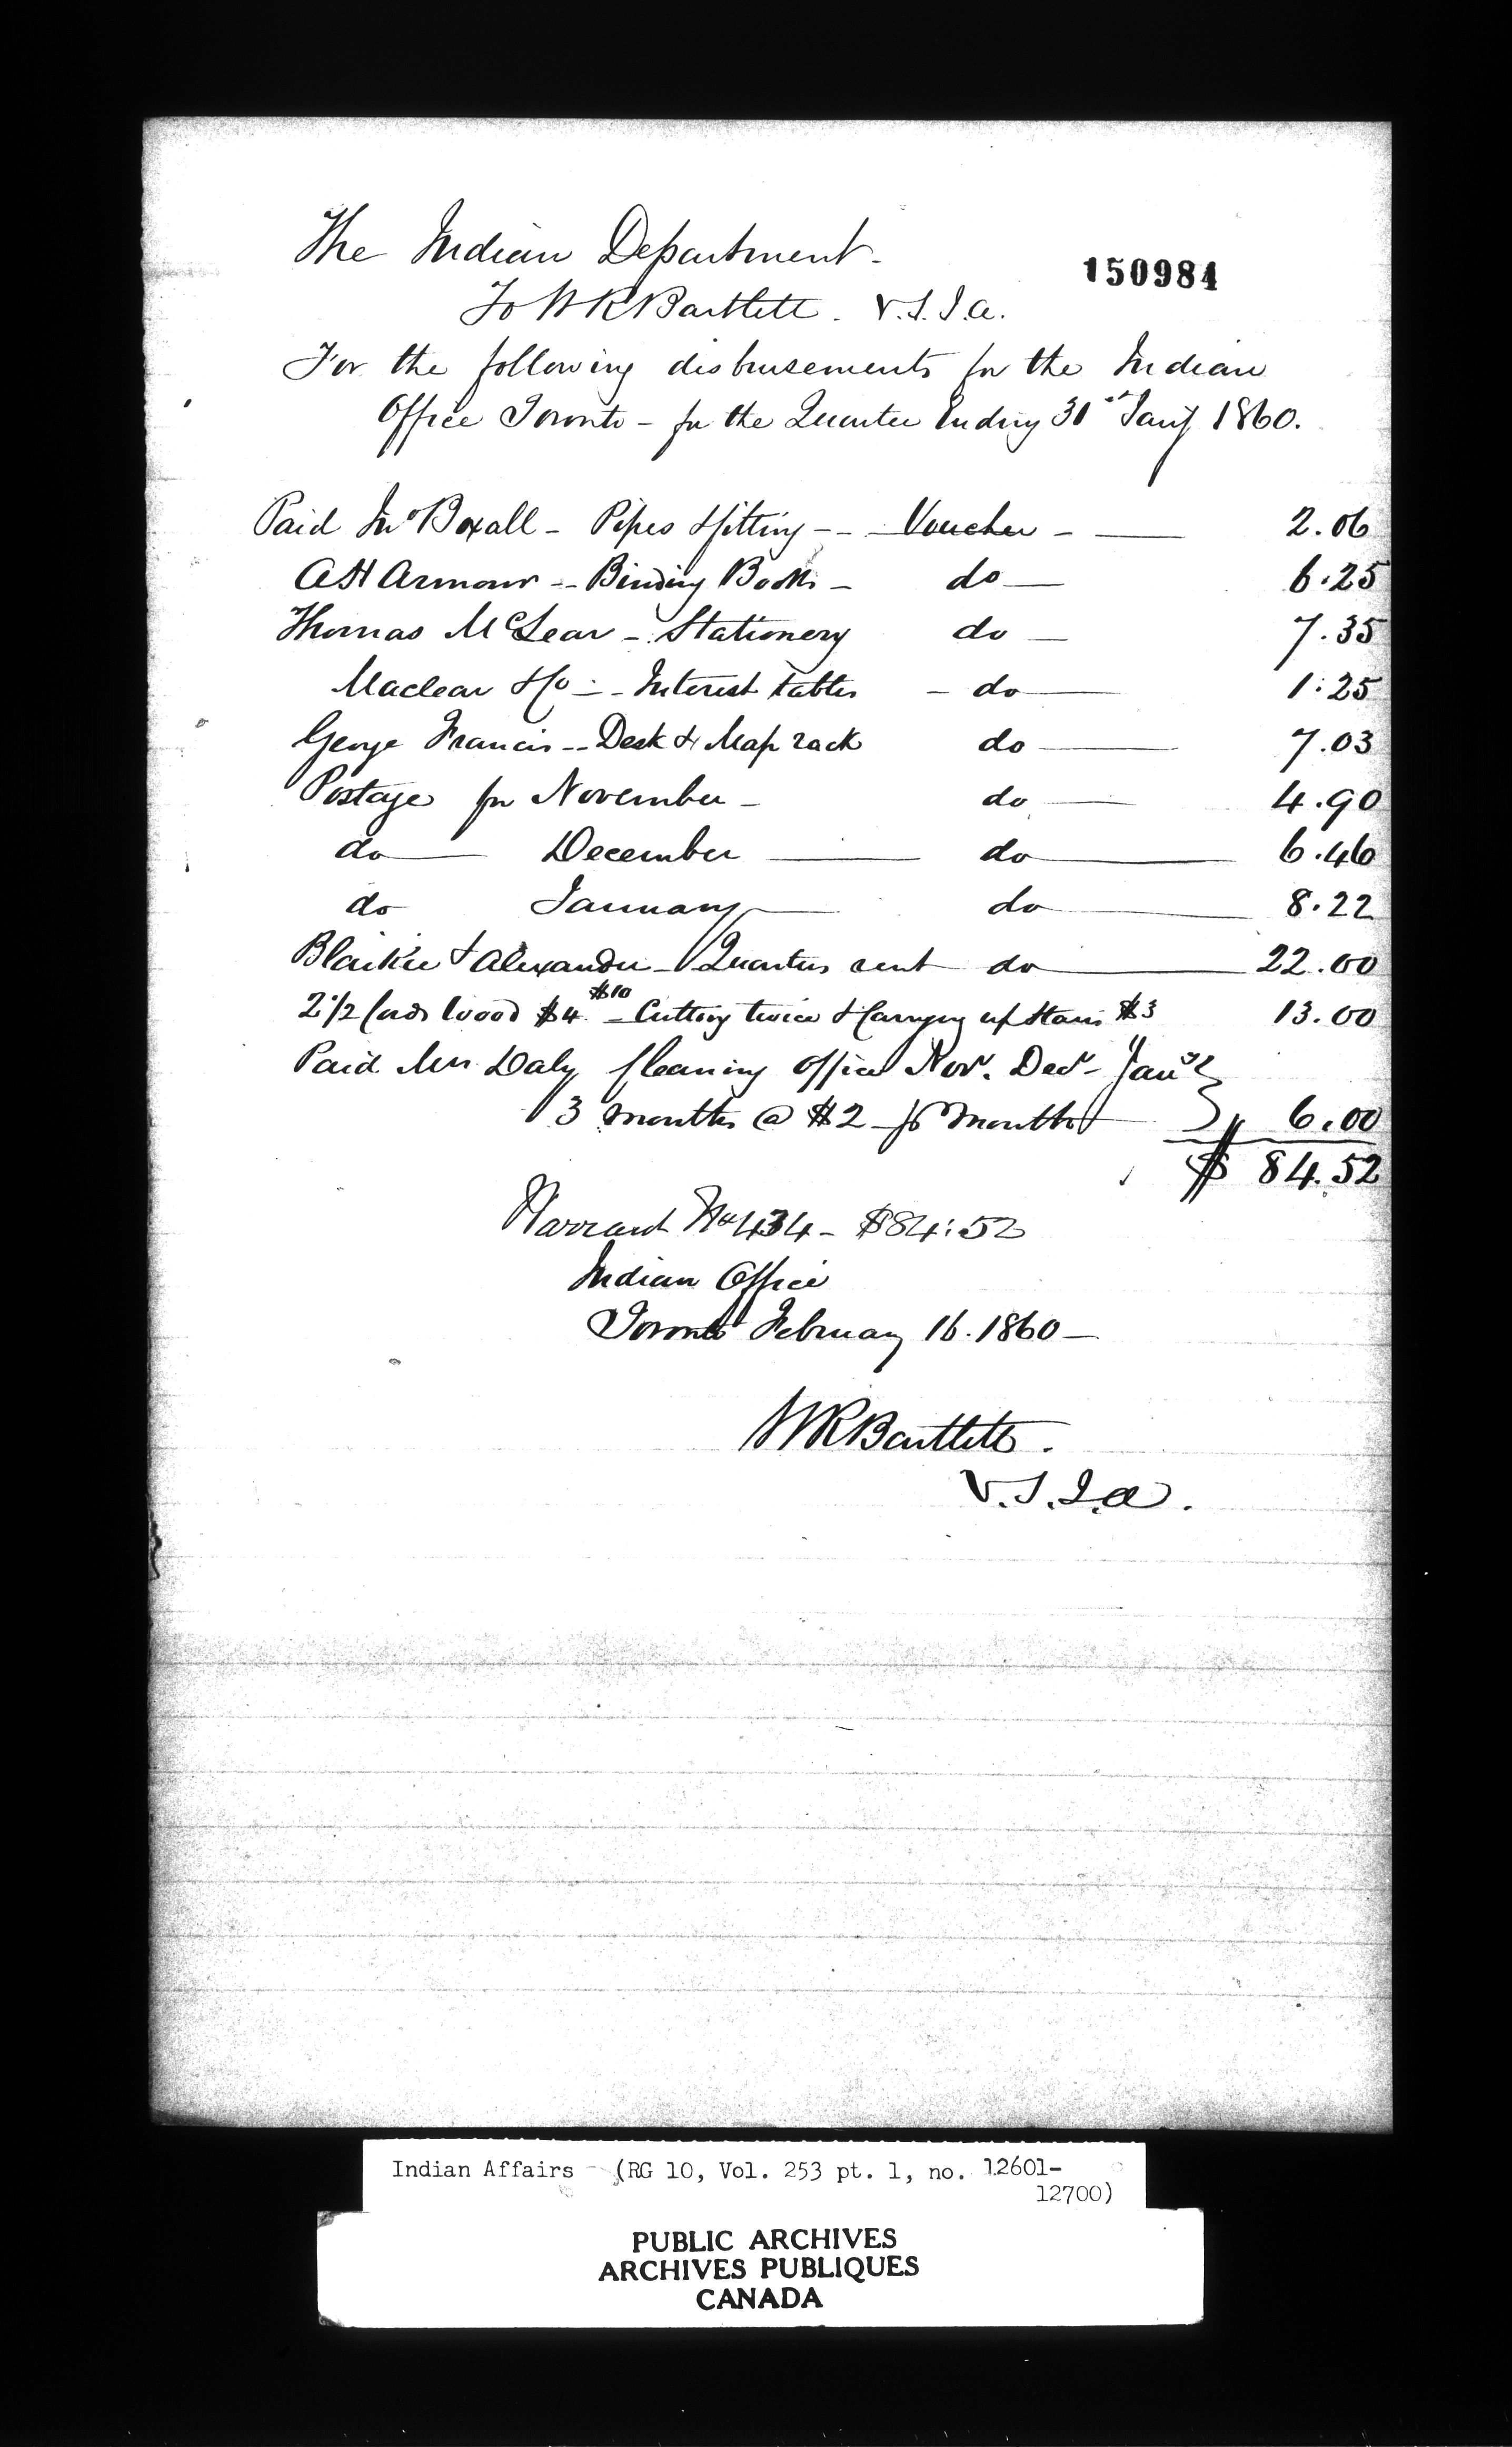 The Indian Department.
150984
To W R Bartlett. V.S.I.A.
For the following disbursements for the Indian
Office Toronto - for the Quarter Ending 31st Jany 1860.
Paid Jno Boxall - Pipes & fitting - - Voucher - 2.06
A H Armour - - Binding Books - do 6.25
Thomas McLear - Stationery do 7.35
Maclear & Co - - Interest tables - do 1.25
George Francis - - Desk & Map rack do 7.03
Postage for November - do 4.90
do December do 6.46
do January do 8.22
Blaikie & Alexander - Quarters rent do 22.00
2 1/2 Cords Wood $4 $10 - Cutting twice & Carrying up Stairs $3 13.00
Paid Mrs Daly Cleaning Office Nov. Decr - Jany
3 months @ $2 - pr Month 6.00
$ 84.52
Warrant No 434 - $84:52
Indian Office
Toronto February 16. 1860 -
W R Bartlett.
V.S.I.A.
Indian Affairs (RG 10, Vol. 253 pt. 1, no. 12601-
12700)
PUBLIC ARCHIVES
ARCHIVES PUBLIQUES
CANADA